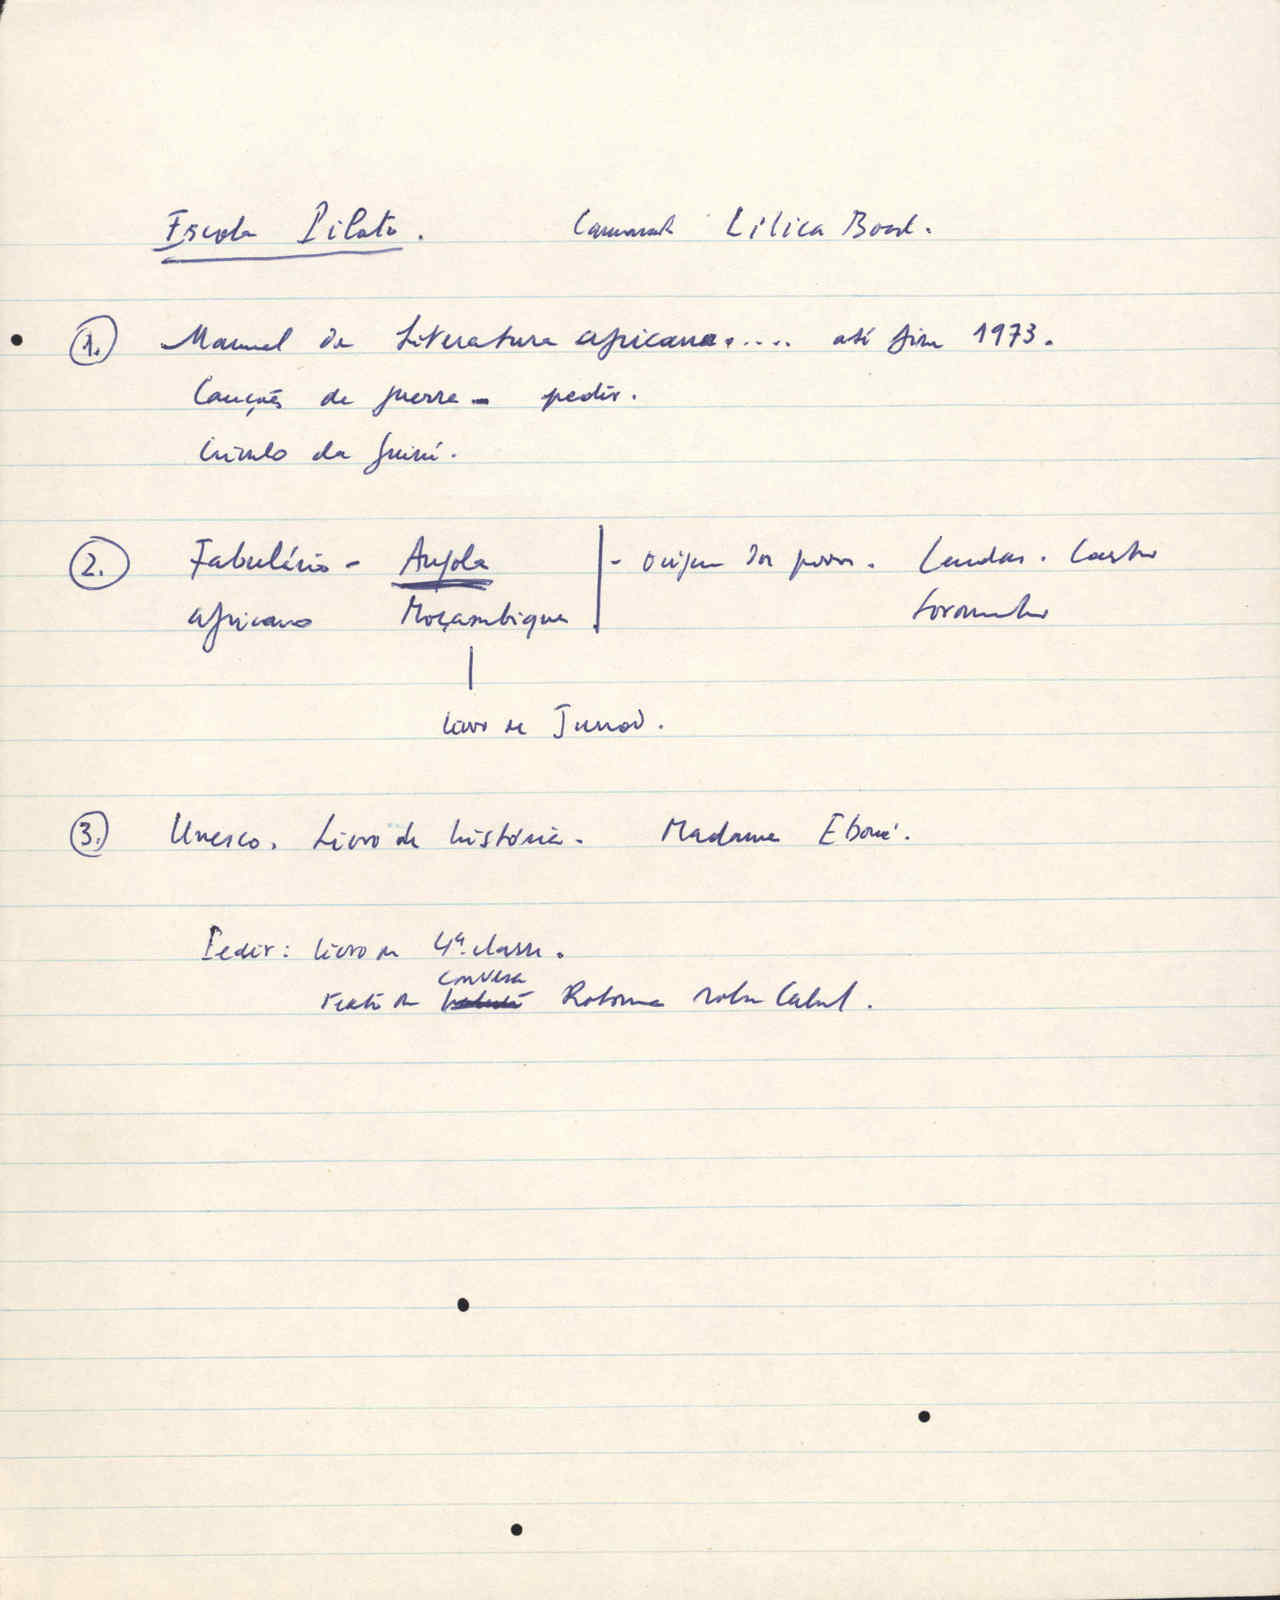 Escola Piloto. Camarada Lilica Boal.
1. Manual de Literatura africana..... até fim 1973.
Canções de guerra - pedir.
Crioulo da Guiné.
2. Fabulário - Angola - origem dos povos. Lendas. Castro
africano Moçambique Soromenho
livro de Junod.
3. Unesco. Livro de história. Madame Eboué.
Pedir: livro de 4ª classe.
conversa
texto da Rotonna sobre Cabral.